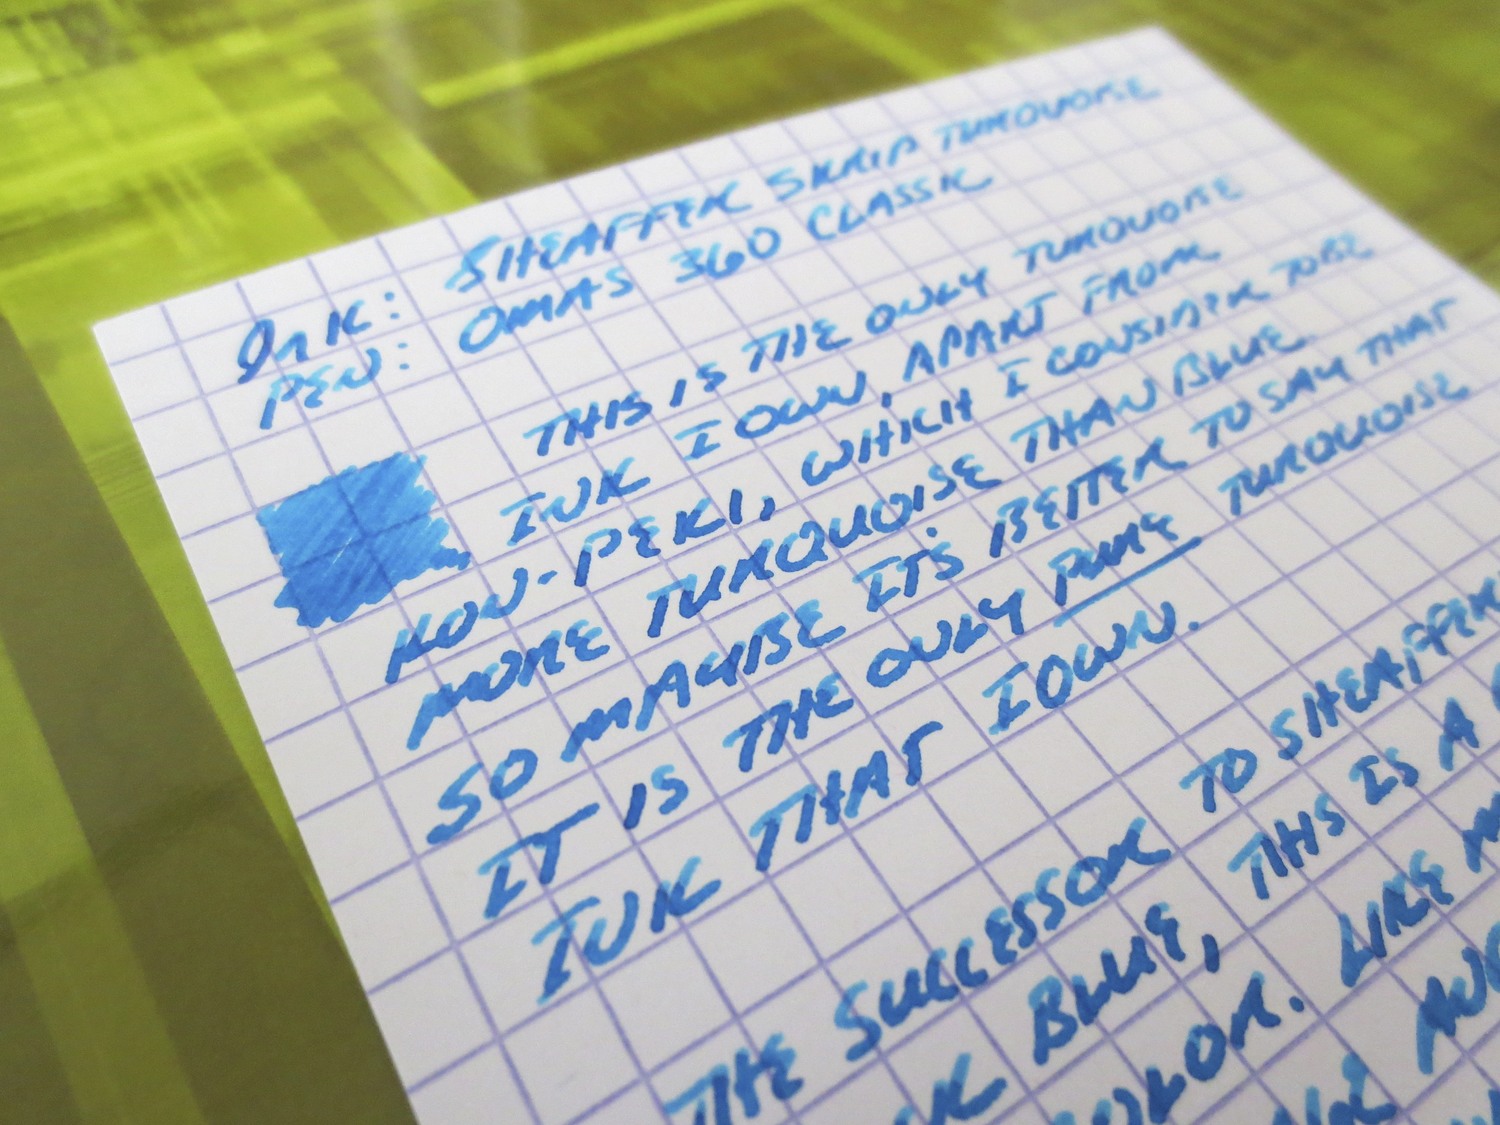 Ink: SHEAFFER SKRIP TURQUOISE
PEN: OMAS 360 CLASSIC
THIS IS THE ONLY TURQUOISE
INK I OWN, APART FROM
KON-PEKI, WHICH I CONSIDER TO BE
MORE TURQUOISE THAN BLUE.
SO MAYBE IT'S BETTER TO SAY THAT
IT IS THE ONLY PURE TURQUOISE
INK THAT I OWN.
THE SUCCESSOR TO SHEAFFER
BLUE, THIS IS A
COLOR. LIKE